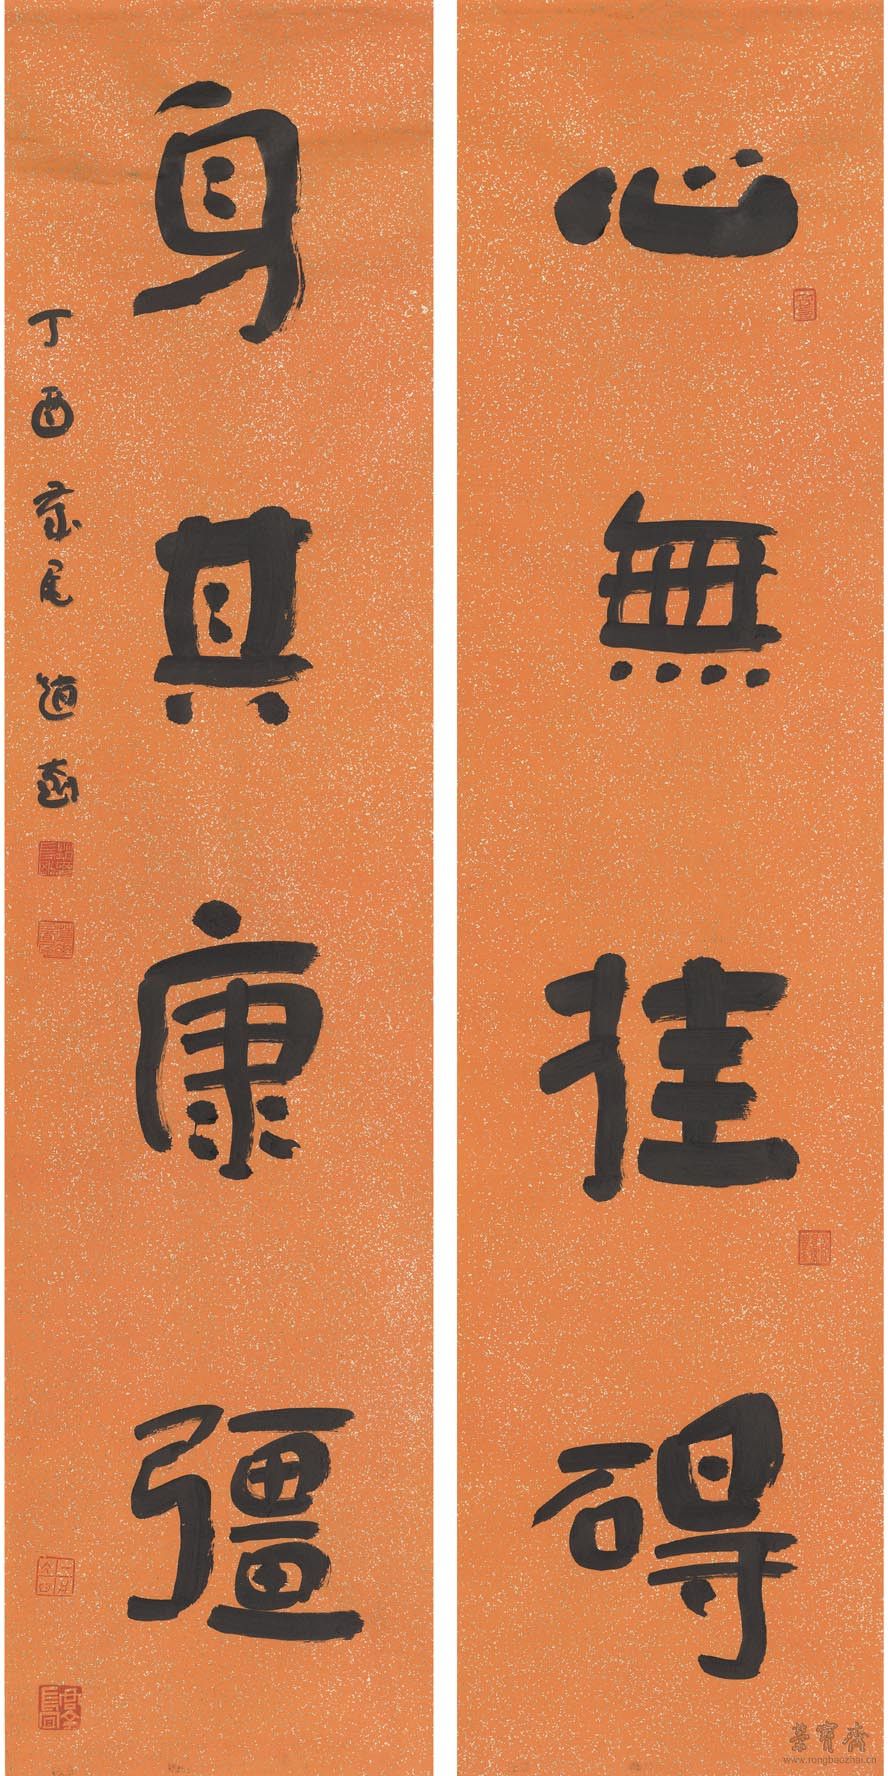 心無挂礙
身其康彊
丁酉歲尾
榮寶齋
www.rongbaozhai.cn